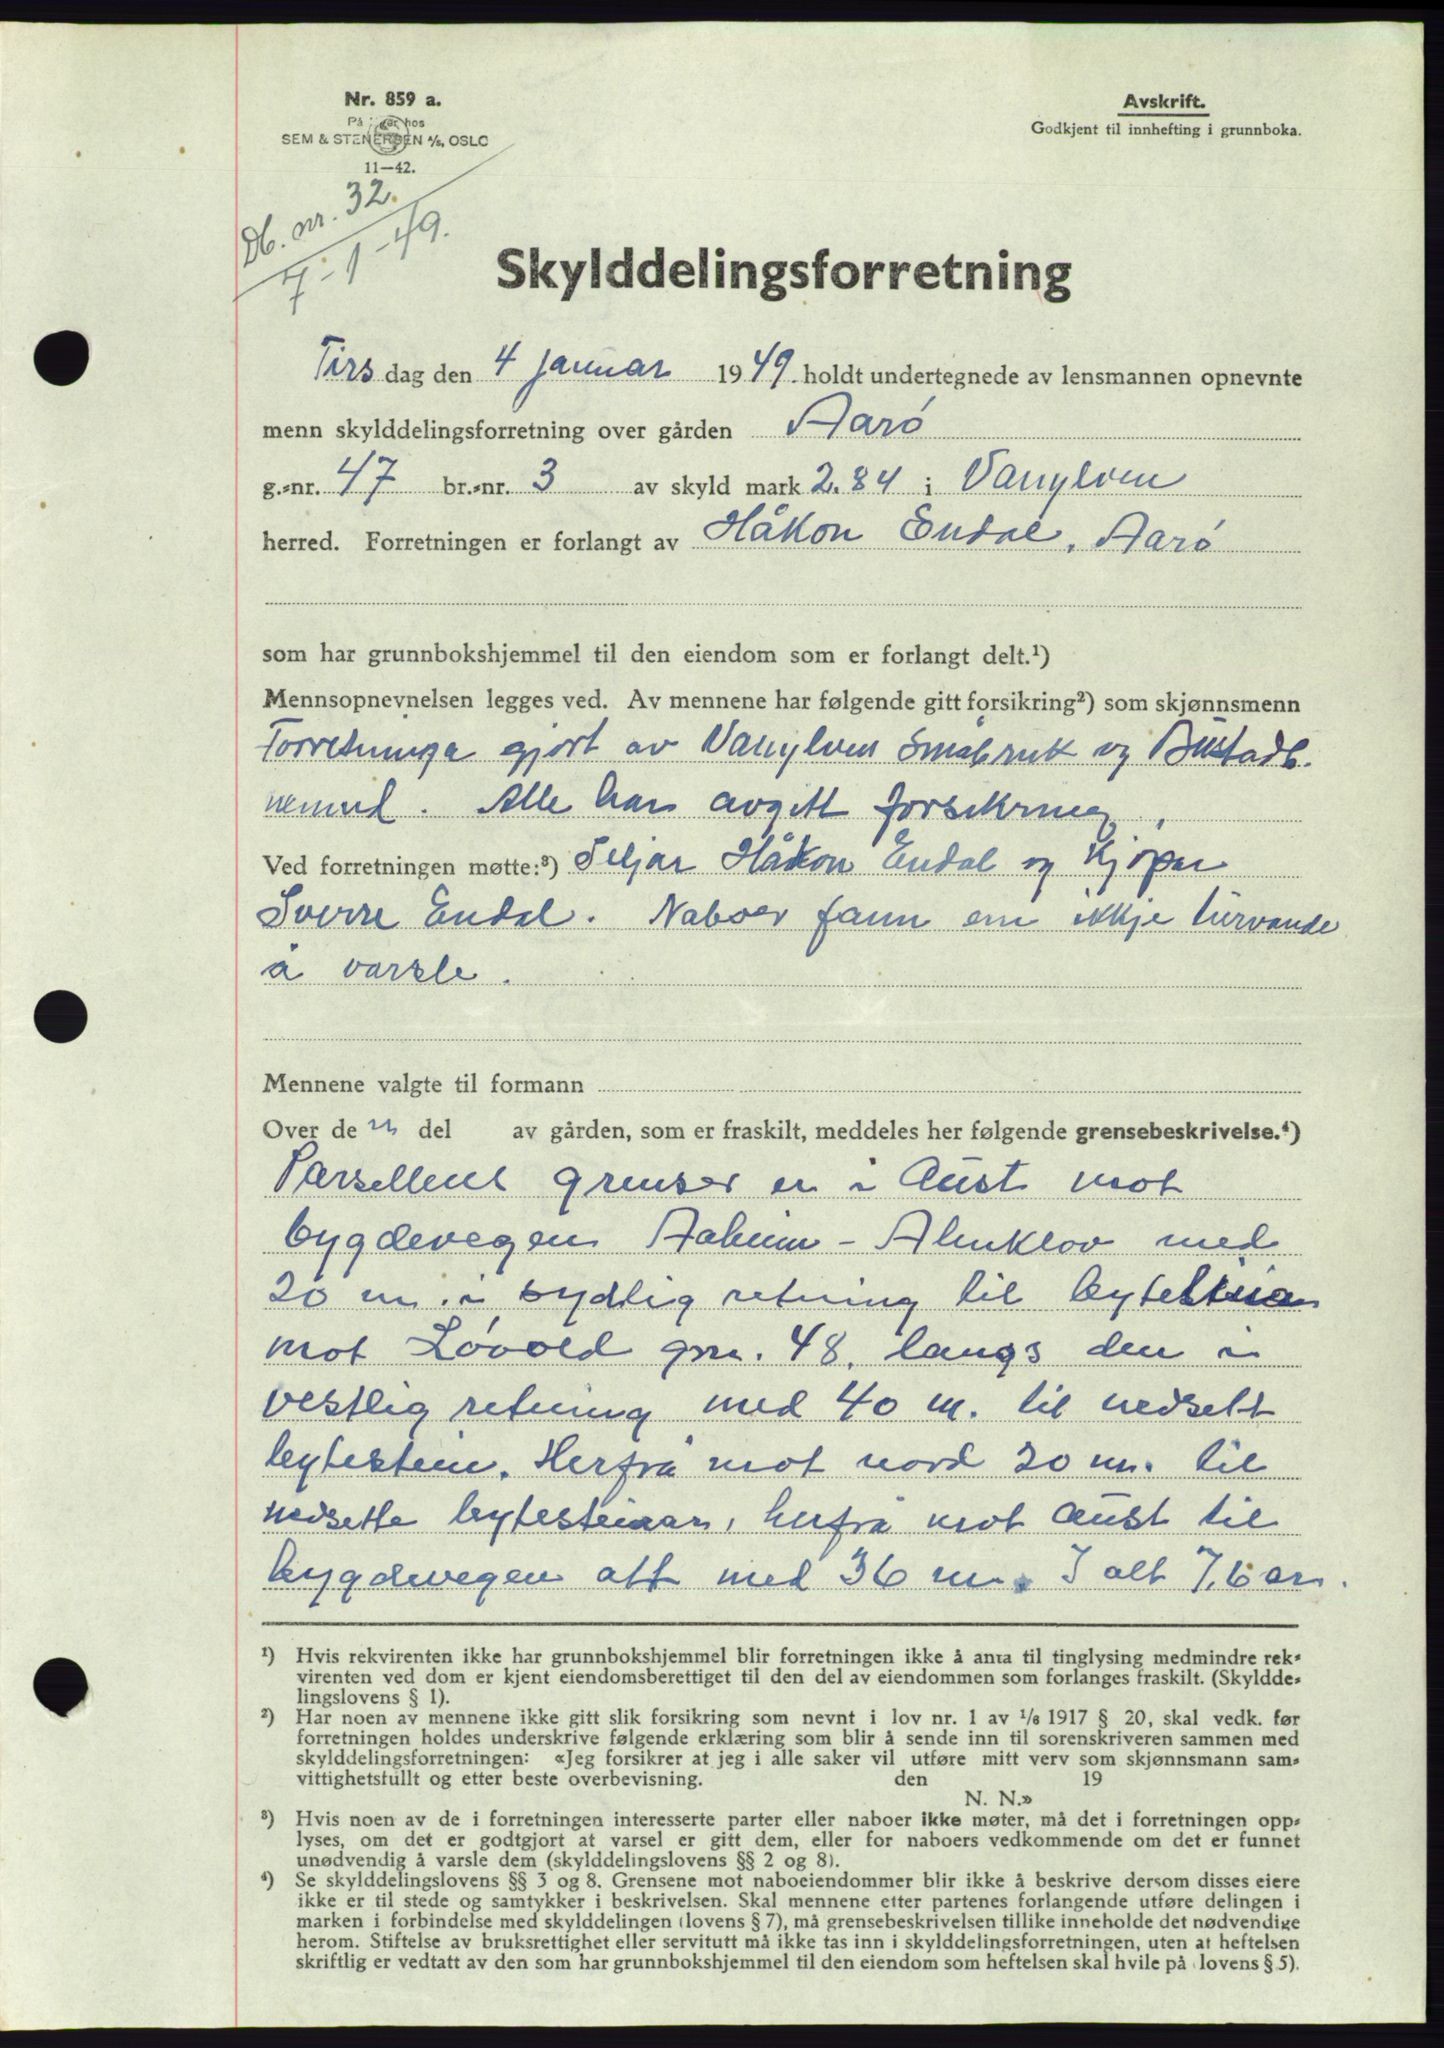 Nr. 859 a.
På lager hos
SEM & STENERSEN A/S, OSLO
11—42.
Avskrift.
Godkjent til innhefting i grunnboka.
Db. nr. 32
7-1-49.
Skylddelingsforretning
Tirsdag den 4 januar 1949. holdt undertegnede av lensmannen opnevnte
menn skylddelingsforretning over gården Aarö
g.-nr. 47 br.-nr. 3 av skyld mark 2.84 i Vanylven
herred. Forretningen er forlangt av Håkon Endal, Aarö
som har grunnbokshjemmel til den eiendom som er forlangt delt.¹)
Mennsopnevnelsen legges ved. Av mennene har følgende gitt forsikring²) som skjønnsmenn
Forretninga gjort av Vanylven Småbruk og Bustadb.
nemnd. Alle har avgitt forsikring.
Ved forretningen møtte:³) Seljar Håkon Endal og Kjöpar
Sverre Endal. Naboer fann em ikkje turvande
å varsle.
Mennene valgte til formann
Over de n del av gården, som er fraskilt, meddeles her følgende grensebeskrivelse.⁴)
Parsellens grenser er i Aust mot
bygdevegen Aaheim - Almklov med
20 m. i sydlig retning til bytesteinen
mot Lövold gnr. 48. langs den i
vestlig retning med 40 m. til nedsett
bytestein. Herfrå mot nord 20 m. til
nedsette bytesteinar, herfrå mot aust til
bygdevegen att med 36 m. I alt 7,6 ar.
¹) Hvis rekvirenten ikke har grunnbokshjemmel blir forretningen ikke å anta til tinglysing medmindre rek-
virenten ved dom er kjent eiendomsberettiget til den del av eiendommen som forlanges fraskilt. (Skyldde-
lingslovens § 1).
²) Har noen av mennene ikke gitt slik forsikring som nevnt i lov nr. 1 av ¹/₈ 1917 § 20, skal vedk. før
forretningen holdes underskrive følgende erklæring som blir å sende inn til sorenskriveren sammen med
skylddelingsforretningen: «Jeg forsikrer at jeg i alle saker vil utføre mitt verv som skjønnsmann sam-
vittighetsfullt og etter beste overbevisning. den 19
N. N.»
³) Hvis noen av de i forretningen interesserte parter eller naboer ikke møter, må det i forretningen opp-
lyses, om det er godtgjort at varsel er gitt dem, eller for naboers vedkommende om det er funnet
unødvendig å varsle dem (skylddelingslovens §§ 2 og 8).
⁴) Se skylddelingslovens §§ 3 og 8. Grensene mot naboeiendommer blir ikke å beskrive dersom disses eiere
ikke er til stede og samtykker i beskrivelsen. Skal mennene etter partenes forlangende utføre delingen i
marken i forbindelse med skylddelingen (lovens § 7), må grensebeskrivelsen tillike inneholde det nødvendige
herom. Stiftelse av bruksrettighet eller servitutt må ikke tas inn i skylddelingsforretningen, uten at heftelsen
skriftlig er vedtatt av den som har grunnbokshjemmel til den eiendom som heftelsen skal hvile på (lovens § 5).